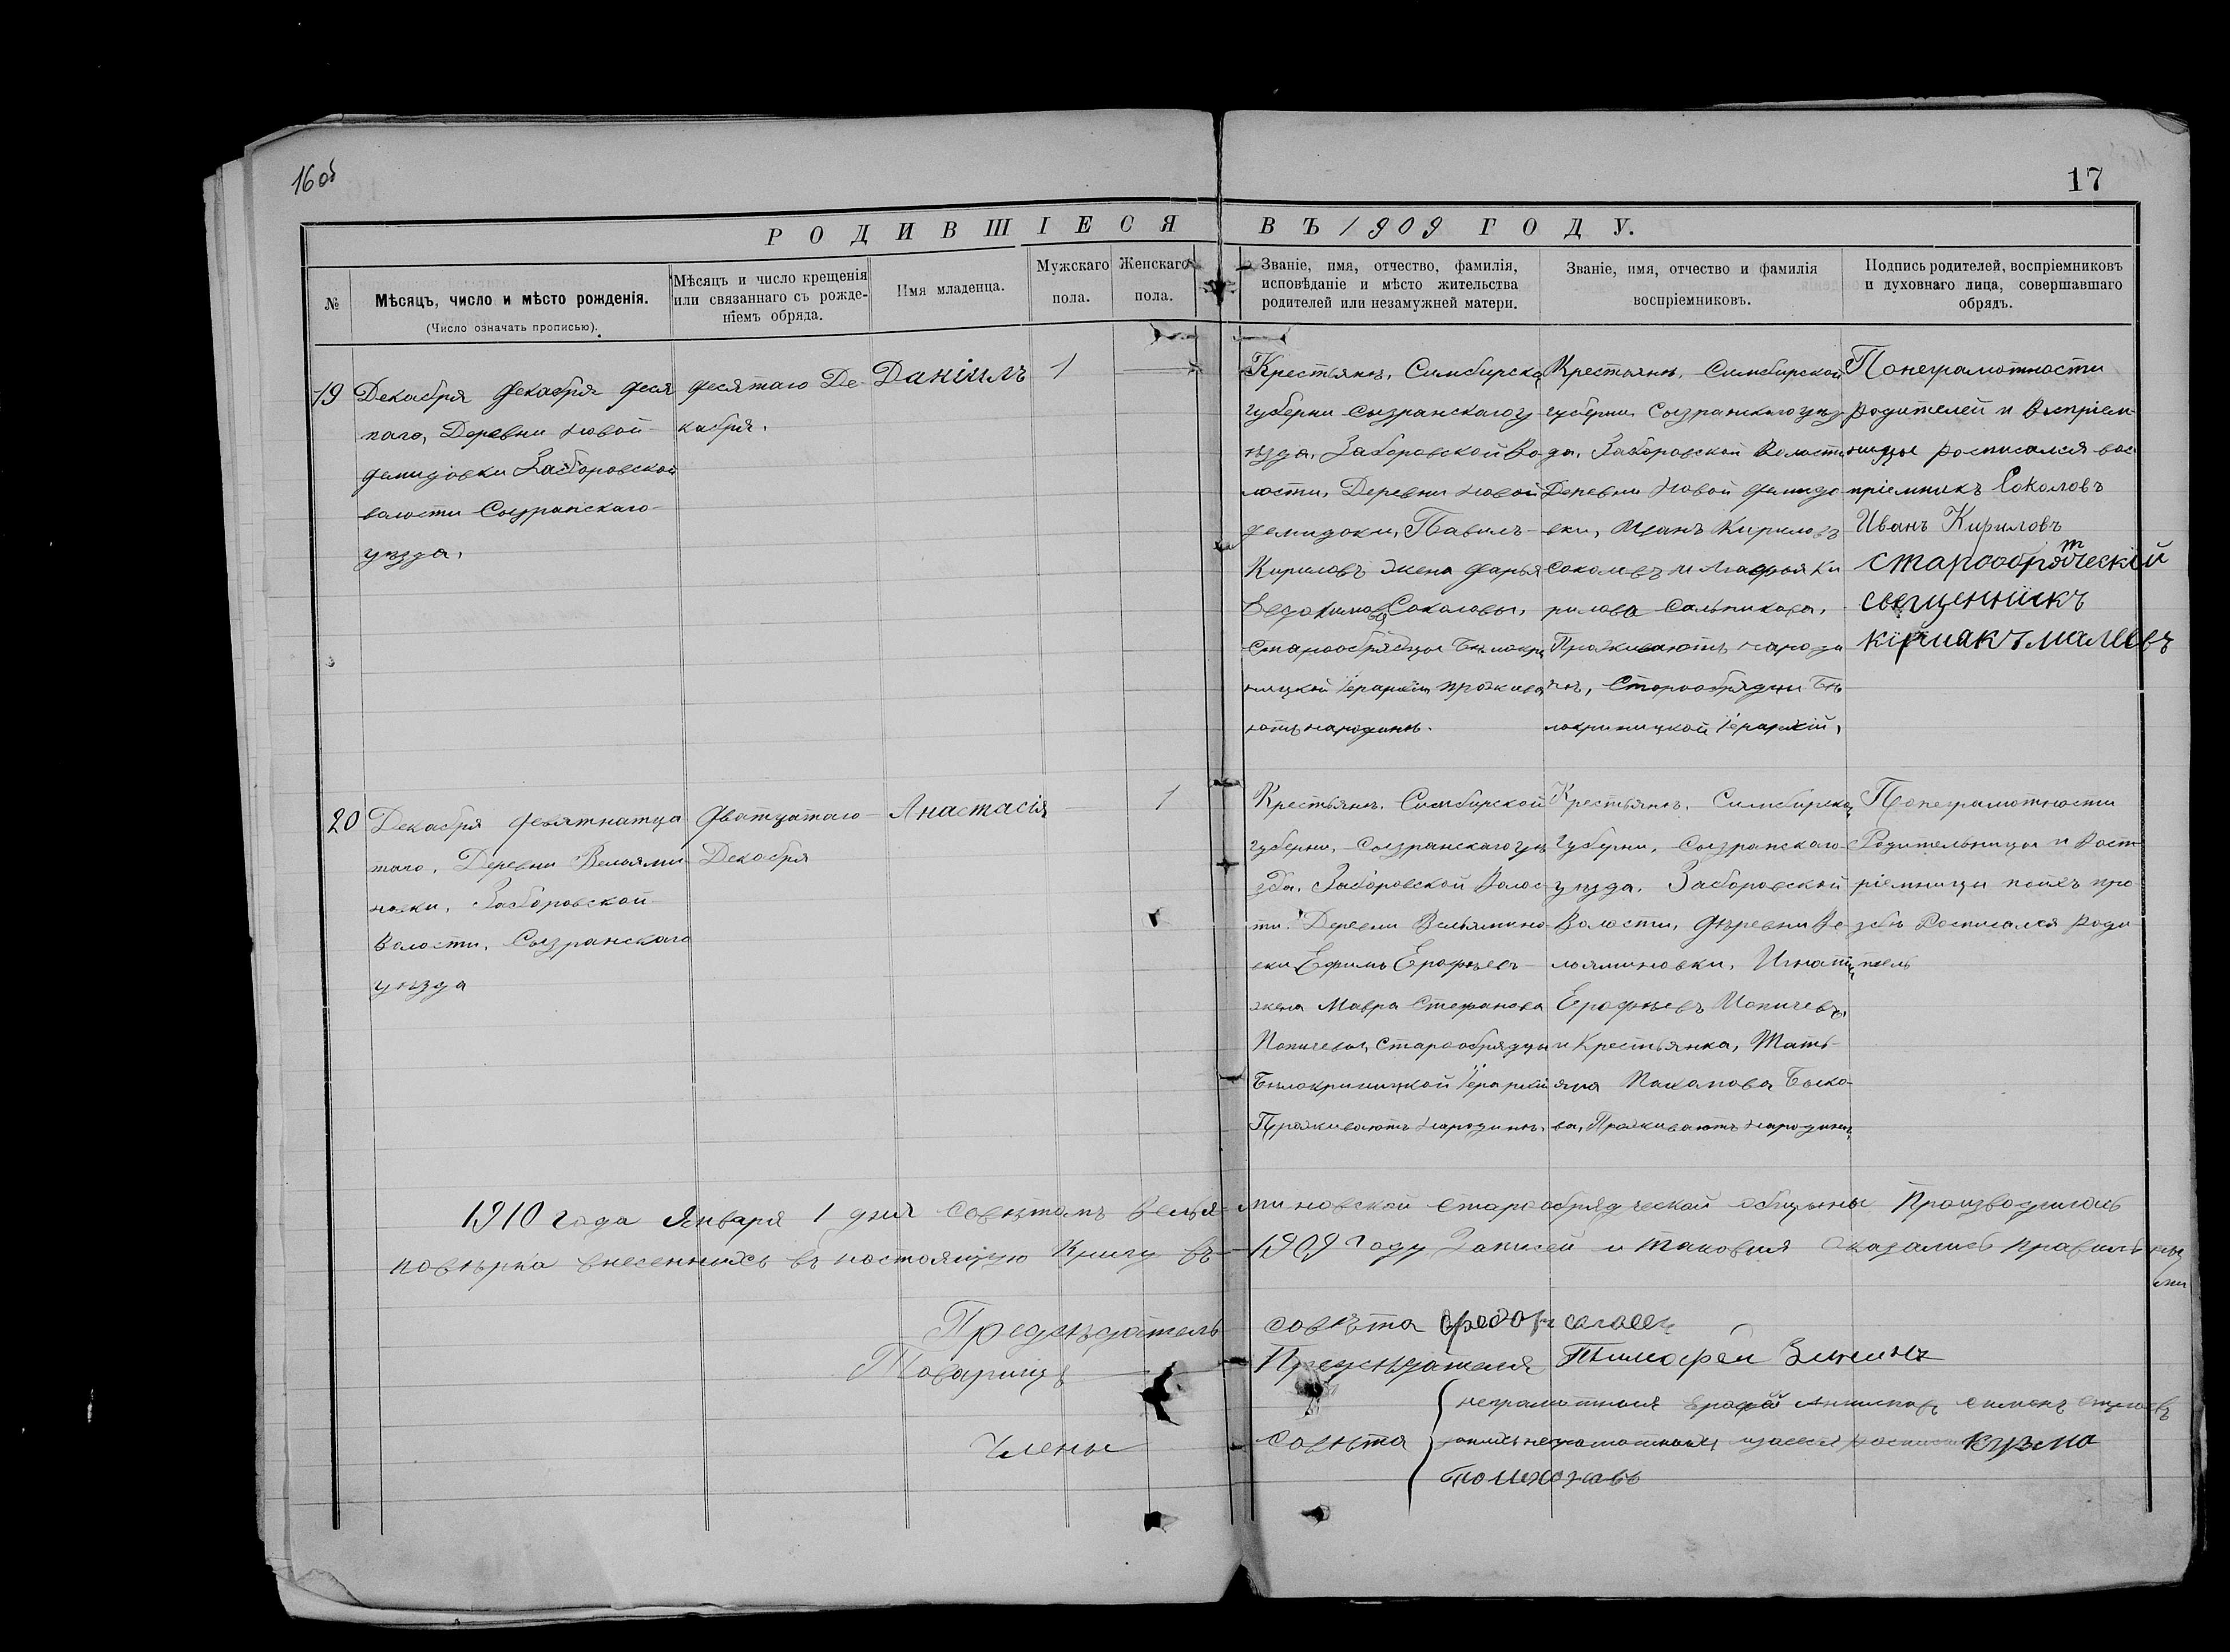 16 об
17
РОДИВШІЕСЯ ВЪ 1909 ГОДУ.
№
Мѣсяцъ, число и мѣсто рожденія.
(Число означать прописью).
Мѣсяцъ и число крещенія
или связаннаго съ рожде-
ніемъ обряда.
Имя младенца.
Мужскаго
пола.
Женскаго
пола.
Званіе, имя, отчество, фамилія,
исповѣданіе и мѣсто жительства
родителей или незамужней матери.
Званіе, имя, отчество и фамилія
воспріемниковъ.
Подпись родителей, воспріемниковъ
и духовнаго лица, совершавшаго
обрядъ.
19
Декабря Декабря деся
таго, Деревни Новой
демидовки Заборовской
волости Сызранскаго
уѣзда,
десятаго Де-
кабря.
Даніилъ
1
Крестьянъ, Симбирско
губерни сызранскаго у
ѣзда, Заборовской Во
лости, Деревни новой
демидоки, Павилъ
Кириловъ жена дарья
Евдокимова Соколовы,
Старообрядцы Бѣлокри
ницкой Іерархіи прожива
ютъ народинѣ.
Крестьянъ, Симбирской
губерни Сызранскаго уѣз
да, Заборовской Волости
Деревни Новой демидо
вки, Иванъ Кириловъ
Соколовъ и Мафрья Ки
рилова Сальникова,
Проживаютъ народи
нѣ, Старообрядцы Бѣ
локриницкой Іерархій,
Понеграмотности
родителей и воспріем
ницы росписался вос
пріемникъ Соколовъ
Иванъ Кириловъ
старообрятческій
священнікъ
кіриакъ малеевъ
20
Декабря девятнатца
таго, Деревни Вельями
новки, Заборовской
Волости, Сызранскаго
уѣзда
Дватцатаго
Декабря
Анастасія
1
Крестьянъ, Симбирской
губерни, сызранскаго уѣ
зда, Заборовской Волос
ти, Деревни Вельямино
вки Ефимъ Ерофѣевъ
жена Мавра Степанова
Попичевы, Старообрядцы
Бѣлокриницкой Іерархіи
Проживаютъ народинѣ,
Крестьянъ, Симбирской
Губерни, Сызранскаго
уѣзда, Заборовской
Волости, дѣревни Ве
льяминовки, Игнатій
Ерофѣевъ Попичевъ,
и Крестьянка, Тать
яна Пахапова Быко
ва, Проживаютъ народинѣ
Понеграмотности
Родительницы и восп
ріемницы поихъ про
збѣ Росписался роди
тель
1910 года Января 1 дня совѣтомъ Вельяминовской старообрядческой общины Производилась
повѣрка внесенныхъ въ настоящую Книгу въ 1909 Году Записей и таковыя оказались правильны
ми
Предсѣдатель совѣта
Товарищъ Предсѣдателя Тимофей Зининъ
Члены совѣта
неграмотныя ерофей
кузма